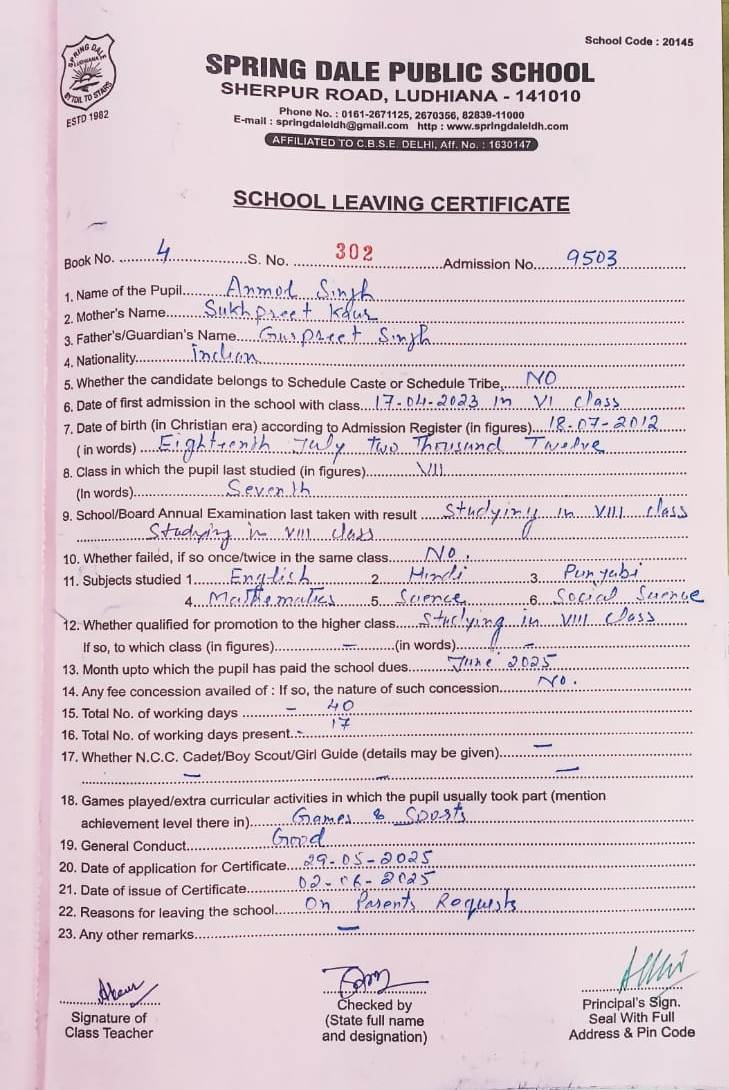 School Code : 20145
SPRING DALE
LUDHIANA
BY TOIL TO STARS
ESTD 1982
SPRING DALE PUBLIC SCHOOL
SHERPUR ROAD, LUDHIANA - 141010
Phone No. : 0161-2671125, 2670356, 82839-11000
E-mail : springdaleldh@gmail.com http : www.springdaleldh.com
AFFILIATED TO C.B.S.E. DELHI, Aff. No. : 1630147
SCHOOL LEAVING CERTIFICATE
Book No. 4 S. No. 302 Admission No. 9503
1. Name of the Pupil Anmol Singh
2. Mother's Name Sukhpreet Kaur
3. Father's/Guardian's Name Gurpreet Singh
4. Nationality Indian
5. Whether the candidate belongs to Schedule Caste or Schedule Tribe, NO
6. Date of first admission in the school with class 17-04-2023 in VI class
7. Date of birth (in Christian era) according to Admission Register (in figures) 18-07-2012
(in words) Eighteenth July Two Thousand Twelve
8. Class in which the pupil last studied (in figures) VII
(In words) Seventh
9. School/Board Annual Examination last taken with result Studying in VIII class
Studying in VIII class
10. Whether failed, if so once/twice in the same class No.
11. Subjects studied 1. English 2. Hindi 3. Punjabi
4. Mathematics 5. Science 6. Social Science
12. Whether qualified for promotion to the higher class Studying in VIII class
If so, to which class (in figures) – (in words) –
13. Month upto which the pupil has paid the school dues June 2025
14. Any fee concession availed of : If so, the nature of such concession No.
15. Total No. of working days – 40
16. Total No. of working days present - 17
17. Whether N.C.C. Cadet/Boy Scout/Girl Guide (details may be given) –
– – –
18. Games played/extra curricular activities in which the pupil usually took part (mention
achievement level there in) Games & Sports
19. General Conduct Good
20. Date of application for Certificate 29-05-2025
21. Date of issue of Certificate 02-06-2025
22. Reasons for leaving the school On Parents Requests
23. Any other remarks –
Signature of
Class Teacher
Checked by
(State full name
and designation)
Principal's Sign.
Seal With Full
Address & Pin Code